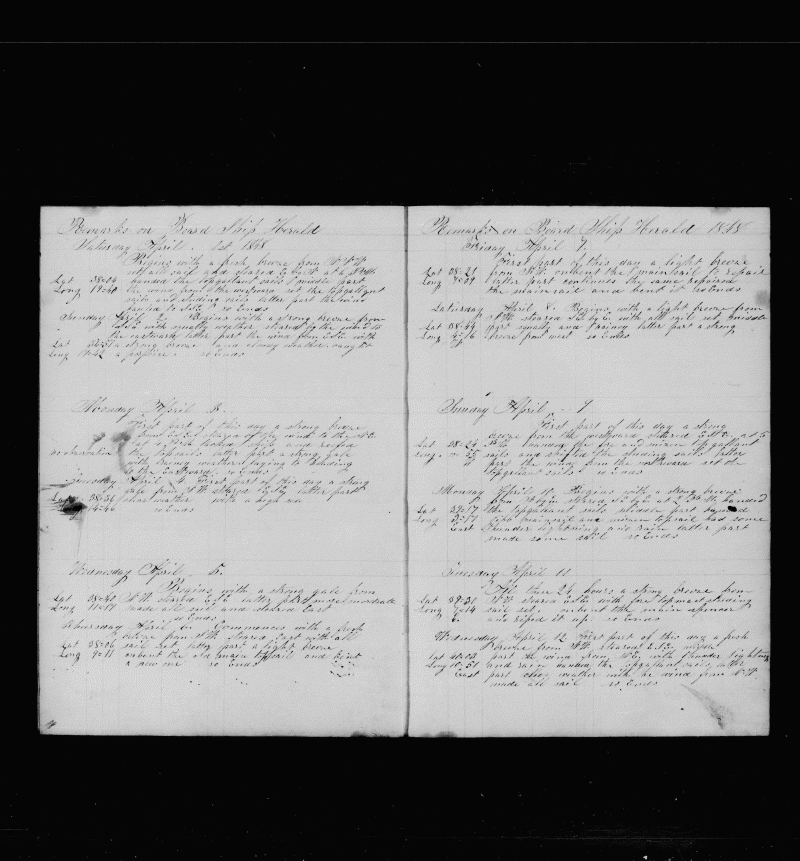 Remarks on Board Ship Herald
Saturday April 1st 1848
Begins with a fresh breeze from
with all sail and steared at 6
Lat 38=04 handed the topgallant sails middle part
Long the wind from the westward set the topgallant
sails and studing sails latter part the wind
hauled to so Ends
Sunday April 2 Begins with a strong breeze from
with squally weather steared by the wind to
the eastward latter part the wind from with
Lat a strong breeze and cloudy weather caught
Long a porpoise so Ends
Monday April 3
First part of this day a strong breeze
from steared by the wind to the
at tacked ship and reefed
no observation the topsails latter part a strong gale
with rainy weather laying to heading
to the Eastward so Ends
Tuesday April 4 First part of this day a strong
gale from steared latter part
Lat 38=36 clear weather with a high sea
14=46 so Ends
Wednesday April 5
Begins with a strong gale from
Lat 38=40 steared latter part more moderate
Long 11=17 made all sail and steared East
so Ends
Thursday April 6 Commences with a fresh
breeze from steared East with all
Lat 38=06 sail set latter part a light breeze
Long 9=11 unbent the old main topsail and bent
a new one so Ends
Remarks on Board Ship Herald 1848
Friday April 7
First part of this day a light breeze
Lat 38=21 from unbent the mainsail to repair
Long 7=09 latter part continues the same repaired
the mainsail and bent it so Ends
Saturday April 8 Begins with a light breeze from
steared with all sail set middle
Lat 38=44 part squally and rainy latter part a strong
Long breeze from west so Ends
Sunday April 9
First part of this day a strong
breeze from the westward steared at 5
Lat 38=24 handed the fore and mizen topgallant
Long 0=25 sails and shifted the studing sails latter
part the wind from the northward set the
topgallant sails so Ends
Monday April 10 Begins with a strong breeze
from steared at 2 handed
Lat 39=17 the topgallant sails middle part handed
Long mainsail and mizen topsail had some
East thunder lightning and rain latter part
made some sail so Ends
Tuesday April 11
All these 24 hours a strong breeze from
Lat 39=31 steared with fore topmast studing
Long 7=14 sail set unbent the main spencer
E and riped it up so Ends
Wednesday April 12 First part of this day a fresh
breeze from steared middle
Lat part the wind from with thunder lightning
Long 10=51 and rain handed the topgallant sails latter
East part cloudy weather with the wind from
made all sail so Ends